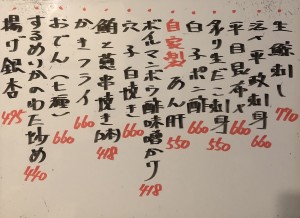 生鯨刺し 770
平政刺身 660
平目昆布〆 660
炙り生だこ刺身 550
白子ポン酢
自家製 あん肝 550
酢味噌がけ 418
穴子白焼き 660
鮪と葱串焼き 418
かきフライ 660
おでん(七種) 660
するめいかのわた炒め 440
揚げ銀杏 495